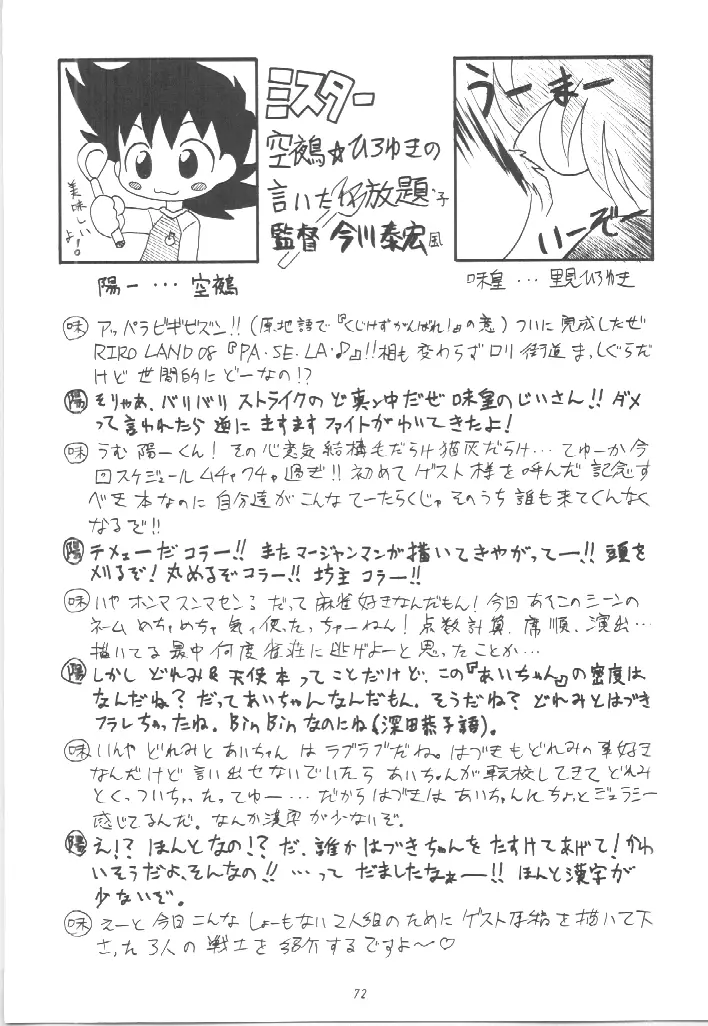 美味しいよ!
陽一…空鵺
ミスター
空鵺☆ひろゆきの
言いた放題
監督 今川泰宏風
うーまー
いーぞー
味皇…里見ひろゆき
味 アッパラビギビズン!!(原地語で『くじけずがんばれ!』の意)ついに完成したぜ
RIRO LAND 08『PA・SE・LA・♪』!!相も変わらずロリ街道まっしぐらだ
けど世間的にどーなの!?
陽 そりゃあ、バリバリストライクのど真ン中だぜ味皇のじいさん!!ダメ
って言われたら逆にますますファイトがわいてきたよ!
味 うむ陽一くん!その心意気結構毛だらけ猫灰だらけ…てゆーか今
回スケジュールムチャクチャ過ぎ!!初めてゲスト様を呼んだ記念す
べき本なのに自分達がこんなてーたらくじゃそのうち誰も来てくんなく
なるぞ!!
陽 テメェーだコラー!!またマージャンマンが描いてきやがってー!!頭を
刈るぞ!丸めるぞコラー!!坊主コラー!!
味 いやホンマスンマセンだって麻雀好きなんだもん!今回あそこのシーンの
ネームめちゃめちゃ気ィ使たっちゃーねん!点数計算、席順、演出…
描いてる最中何度雀荘に逃げよーと思ったことか…
陽 しかしどれみ&天使本ってことだけど、この『あいちゃん』の密度は
なんだね?だってあいちゃんなんだもん。そうだね?どれみとはづき
フラレちゃったね。Bin Binなのにね(深田恭子語)。
味 いんやどれみとあいちゃんはラブラブだね。はづきもどれみの事好き
なんだけど言い出せないでいたらあいちゃんが転校してきてどれみ
とくっついちゃったってゆー…だからはづきはあいちゃんにちょっとジェラシー
感じてるんだ。なんか漢字が少ないぞ。
陽 え!?ほんとなの!?だ、誰かはづきちゃんをたすけてあげて!かわ
いそうだよ、そんなの!!…ってだましたなぁー!!ほんと漢字が
少ないぞ。
味 えーと今回こんなしょーもない2人組のためにゲスト原稿を描いて下
さった3人の戦士を紹介するですよ〜♡
72